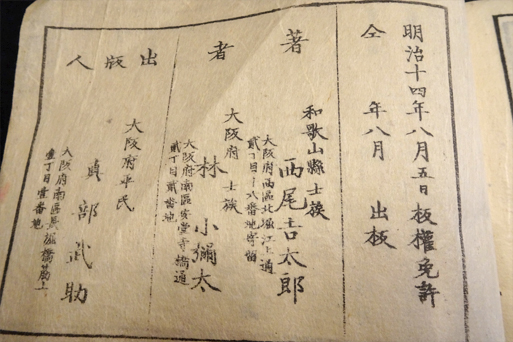 明治十四年八月五日板權免許
仝 年八月 出板
著者
和歌山縣士族
西尾吉太郎
大阪府西區北堀江上通
貳丁目 六番地寄留
大阪府士族
林小彌太
大阪府南區安堂寺橋通
貳丁目貳番地
出版人
大阪府平民
真部武助
大阪府南區長堀橋筋
壹丁目壹番地